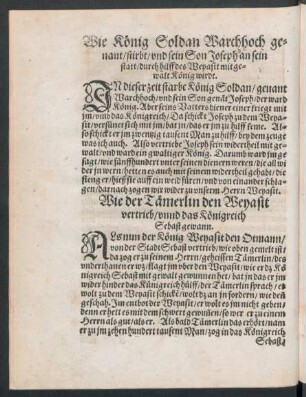 Wie König Soldan Warchhoch ge-
nant/ stirbt/ vnd sein Son Joseph an sein
statt/ durch hülff des Weyasit mit ge-
walt König wirdt.
IN dieser zeit starbe König Soldan/ genant
Warchhoch/ vnd sein Son genãt Joseph/ der ward
König. Aber seins Vatters diener einer kriegt mit
jm/ vmb das Königreich/ Da schickt Joseph zu dem Weya-
sit/ versünet sich mit jm/ bat jn/ das er jm zu hülff keme. Al-
so schickt er jm zwentzig tausent Man zu hülff/ bey dem zeuge
was ich auch. Also vertriebe Joseph sein widertheil mit ge-
walt/ vnd ward ein gwaltiger König. Darumb ward jm ge-
sagt/ wie fünffhundert vnter seinen dienern weren/ die all wi-
der jn wern/ hetten es auch mit seinem widertheil gehabt/ die
fieng er/ hieß sie auff ein weit füren/ vnd von einander schla-
gen/ darnach zogen wir wider zu vnserm Herrn Weyasit.
Wie der Tämerlin den Weyasit
vertrieb/ vnnd das Königreich
Sebast gewann.
ALs nun der König Weyasit den Otman/
von der Stadt Sebast vertrieb/ wie oben gemelt ist/
da zog er zu seinem Herrn/ geheissen Tämerlin/ des
vnderthanen er wz/ klagt jm vber den Weyasit/ wie er dz Kö-
nigreich Sebast mit gewalt gewunnen het/ bat jn das er jm
wider hinder das Künigreich hülff/ der Tämerlin sprach/ er
wolt zu dem Weyasit schickē/ wolt jn an jn fordern/ wie deñ
geschah. Im entbot der Weyasit/ er wolt es jm nicht geben/
denn er hett es mit dem schwert gewunnen/ so wer er zu einem
Herrn als gut/ als er. Als bald Tämerlin das erhört/ nam
er zu jm zehen hundert tausent Man/ zog in das Königreich
Sebast/